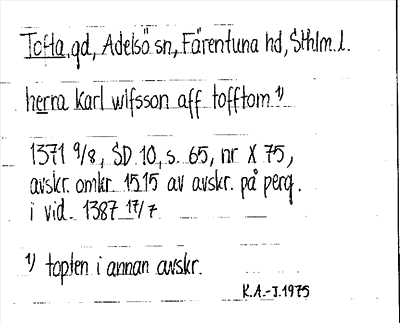 Tofta, gd, Adelsö sn, Färentuna hd, Sthlm. l.
herra karl wlfsson aff tofftom ¹⁾
1371 9/8, SD 10, s. 65, nr X 75,
avskr. omkr 1515 av avskr. på perg.
i vid. 1387 17/7
¹⁾ topten i annan avskr.
K.A.-J. 1975